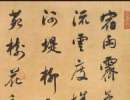 宿雨霽
流雲度
河堤柳
苑樹花